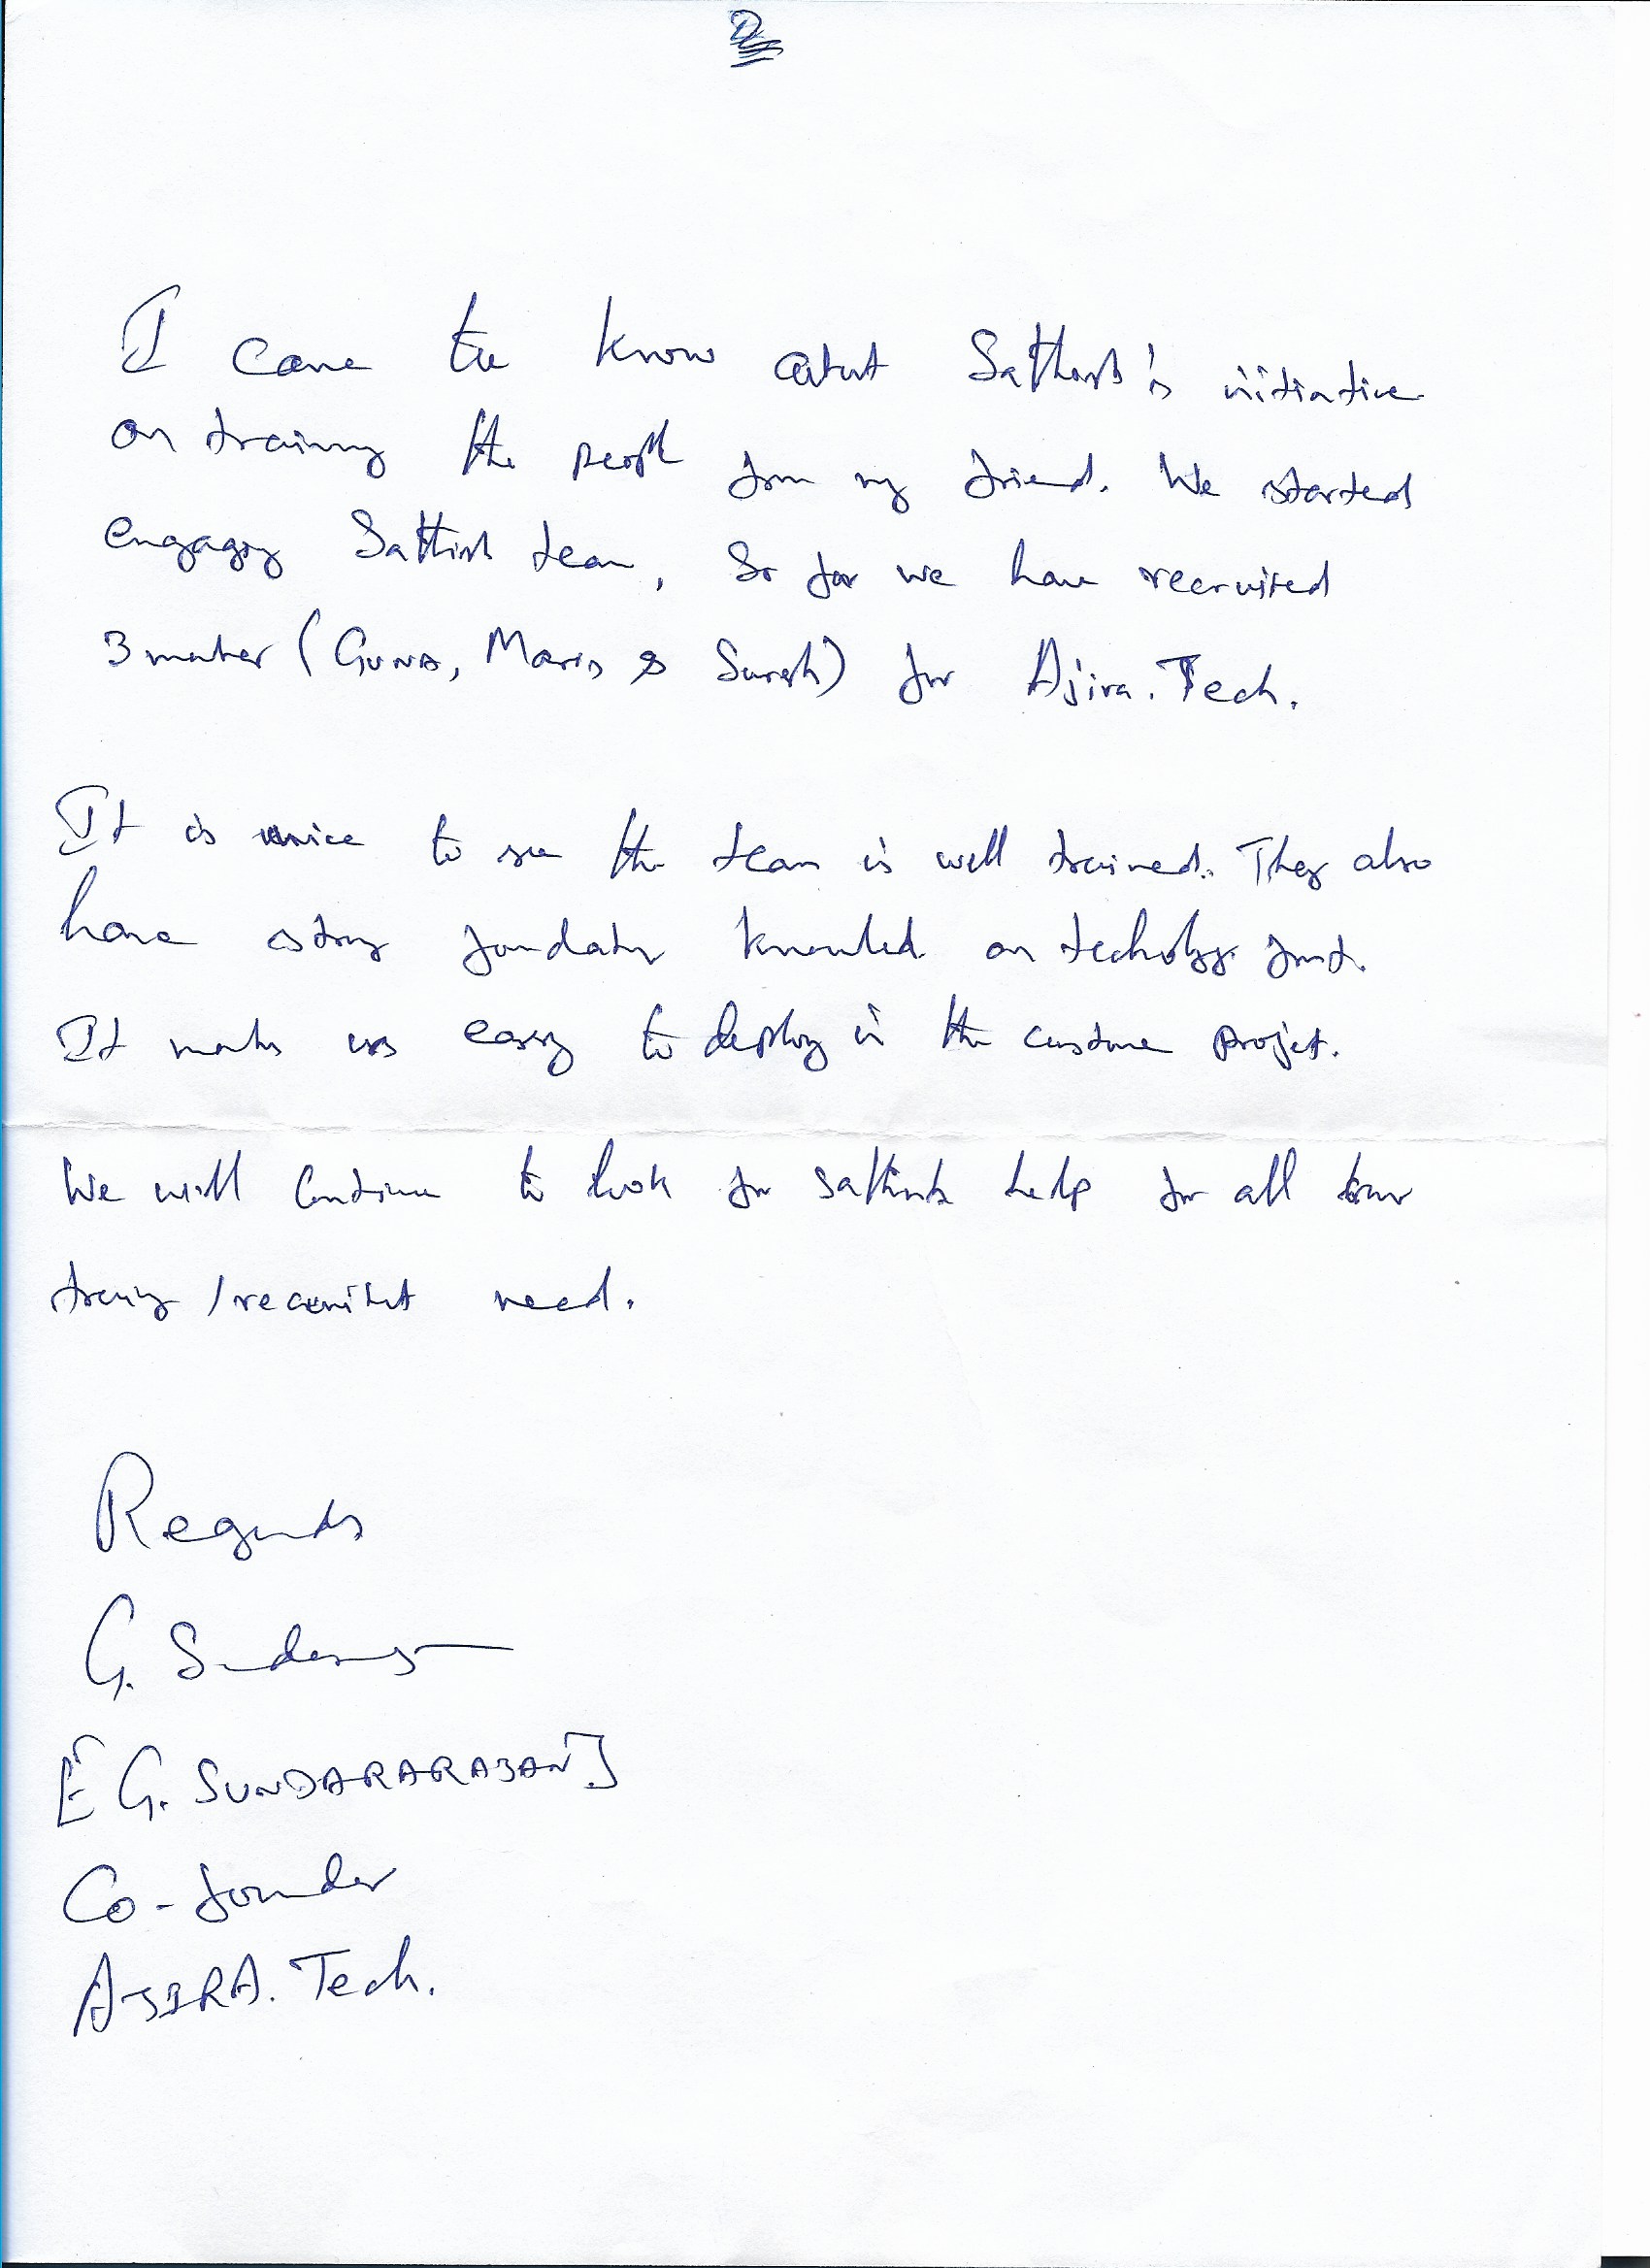 I came to know about Sathish's initiative
on training the people from my friend. We started
engaging Sathish team, So far we have recruited
3 member (GUNA, Maris & Suresh) for Ajira.Tech.
It is nice to see the team is well trained. They also
have strong foundation knowled on technology front.
It makes us easy to deploy in the custome project.
We will continue to look for Sathish help for all our
training / recruitment need.
Regards
G. Sundar
[G. SUNDARARAJAN]
Co-founder
AJIRA.Tech.